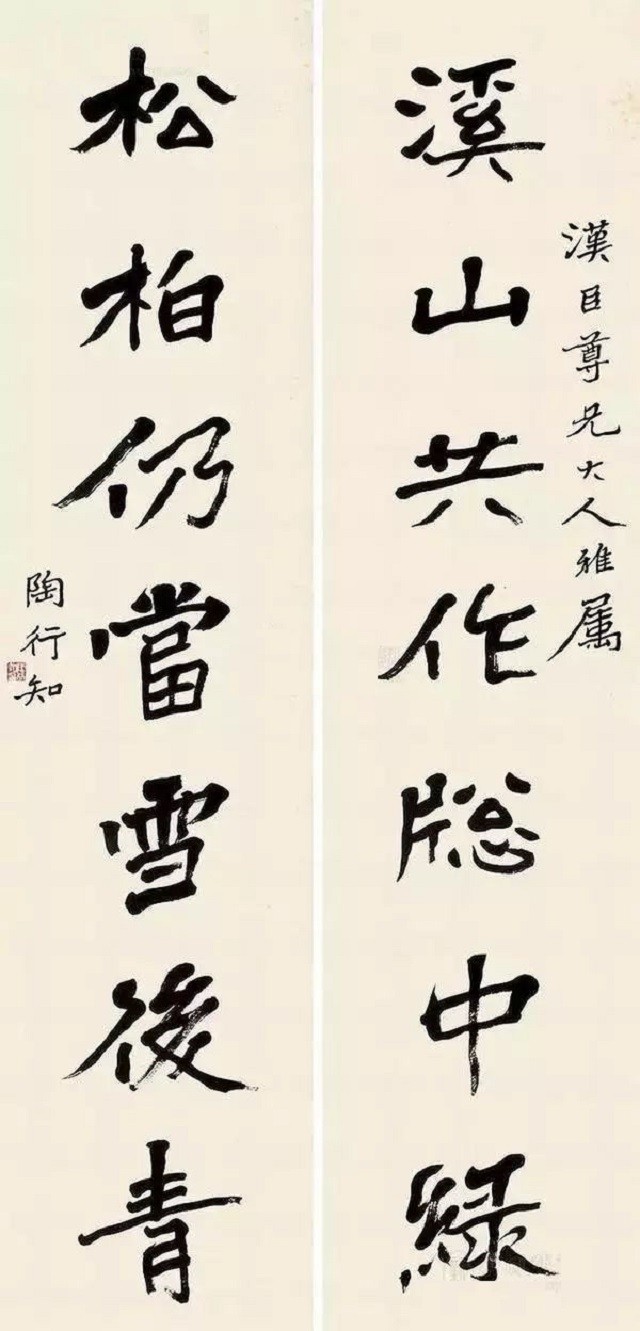 漢臣尊兄大人雅属
溪山共作牕中緑
松柏仍當雪後青
陶行知